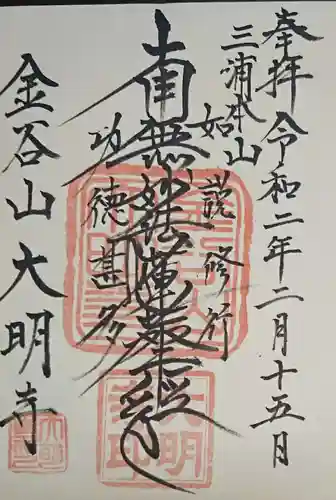 奉拝 令和二年二月十五日
三浦本山
如説修行
南無妙法蓮華経
功徳甚多
金谷山大明寺